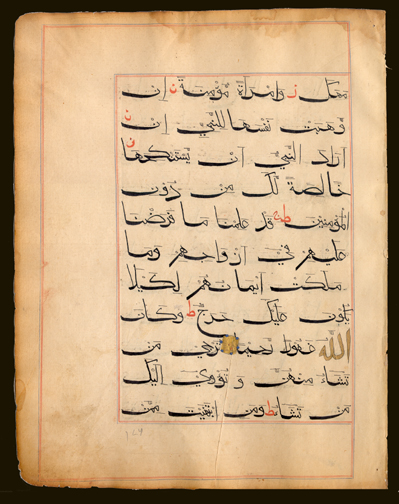 مَعَكَ ز وَامْرَأَةً مُؤْمِنَةً ن إِنْ
وَّهَبَتْ نَفْسَهَا لِلنَّبِيِّ إِنْ ن
أَرَادَ النَّبِيُّ أَنْ يَّسْتَنْكِحَهَا ن
خَالِصَةً لَّكَ مِنْ دُونِ
الْمُؤْمِنِينَ ط قَدْ عَلِمْنَا مَا فَرَضْنَا
عَلَيْهِمْ فِي أَزْوَاجِهِمْ وَمَا
مَلَكَتْ أَيْمَانُهُمْ لِكَيْلَا
يَكُونَ عَلَيْكَ حَرَجٌ ط وَكَانَ
اللّٰهُ غَفُورًا رَحِيمًا تُرْجِي مَنْ
تَشَاءُ مِنْهُنَّ وَتُؤْوِي إِلَيْكَ
مَنْ تَشَاءُ ط وَمَنِ ابْتَغَيْتَ مِمَّنْ